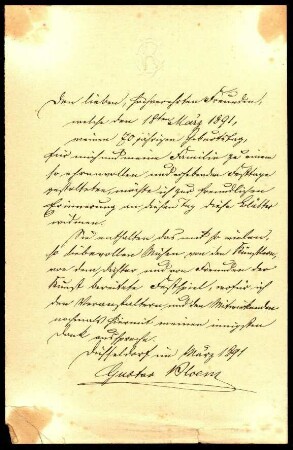 Den lieben, hochverehrten Freunden,
welche den 18ten März 1891,
meinen 70 jährigen Geburtstag,
für mich und meine Familie zu einem
so ehrenvollen und erhebenden Festtage
gestalteten, möchte ich zur freundlichen
Erinnerung an diesen Tag diese Blätter
widmen.
Sie enthalten das mit so vielen,
so liebevollen Mühen von den Künstlern,
von dem Dichter und von Freunden der
Kunst bereitete Festspiel, wofür ich
den Veranstaltern und den Mitwirkenden
nochmals hiermit meinen innigsten
Dank ausspreche.
Düsseldorf im März 1891
Gustav Bloem